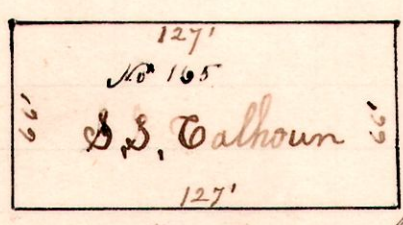 127'
No 165
S. S. Calhoun
127'